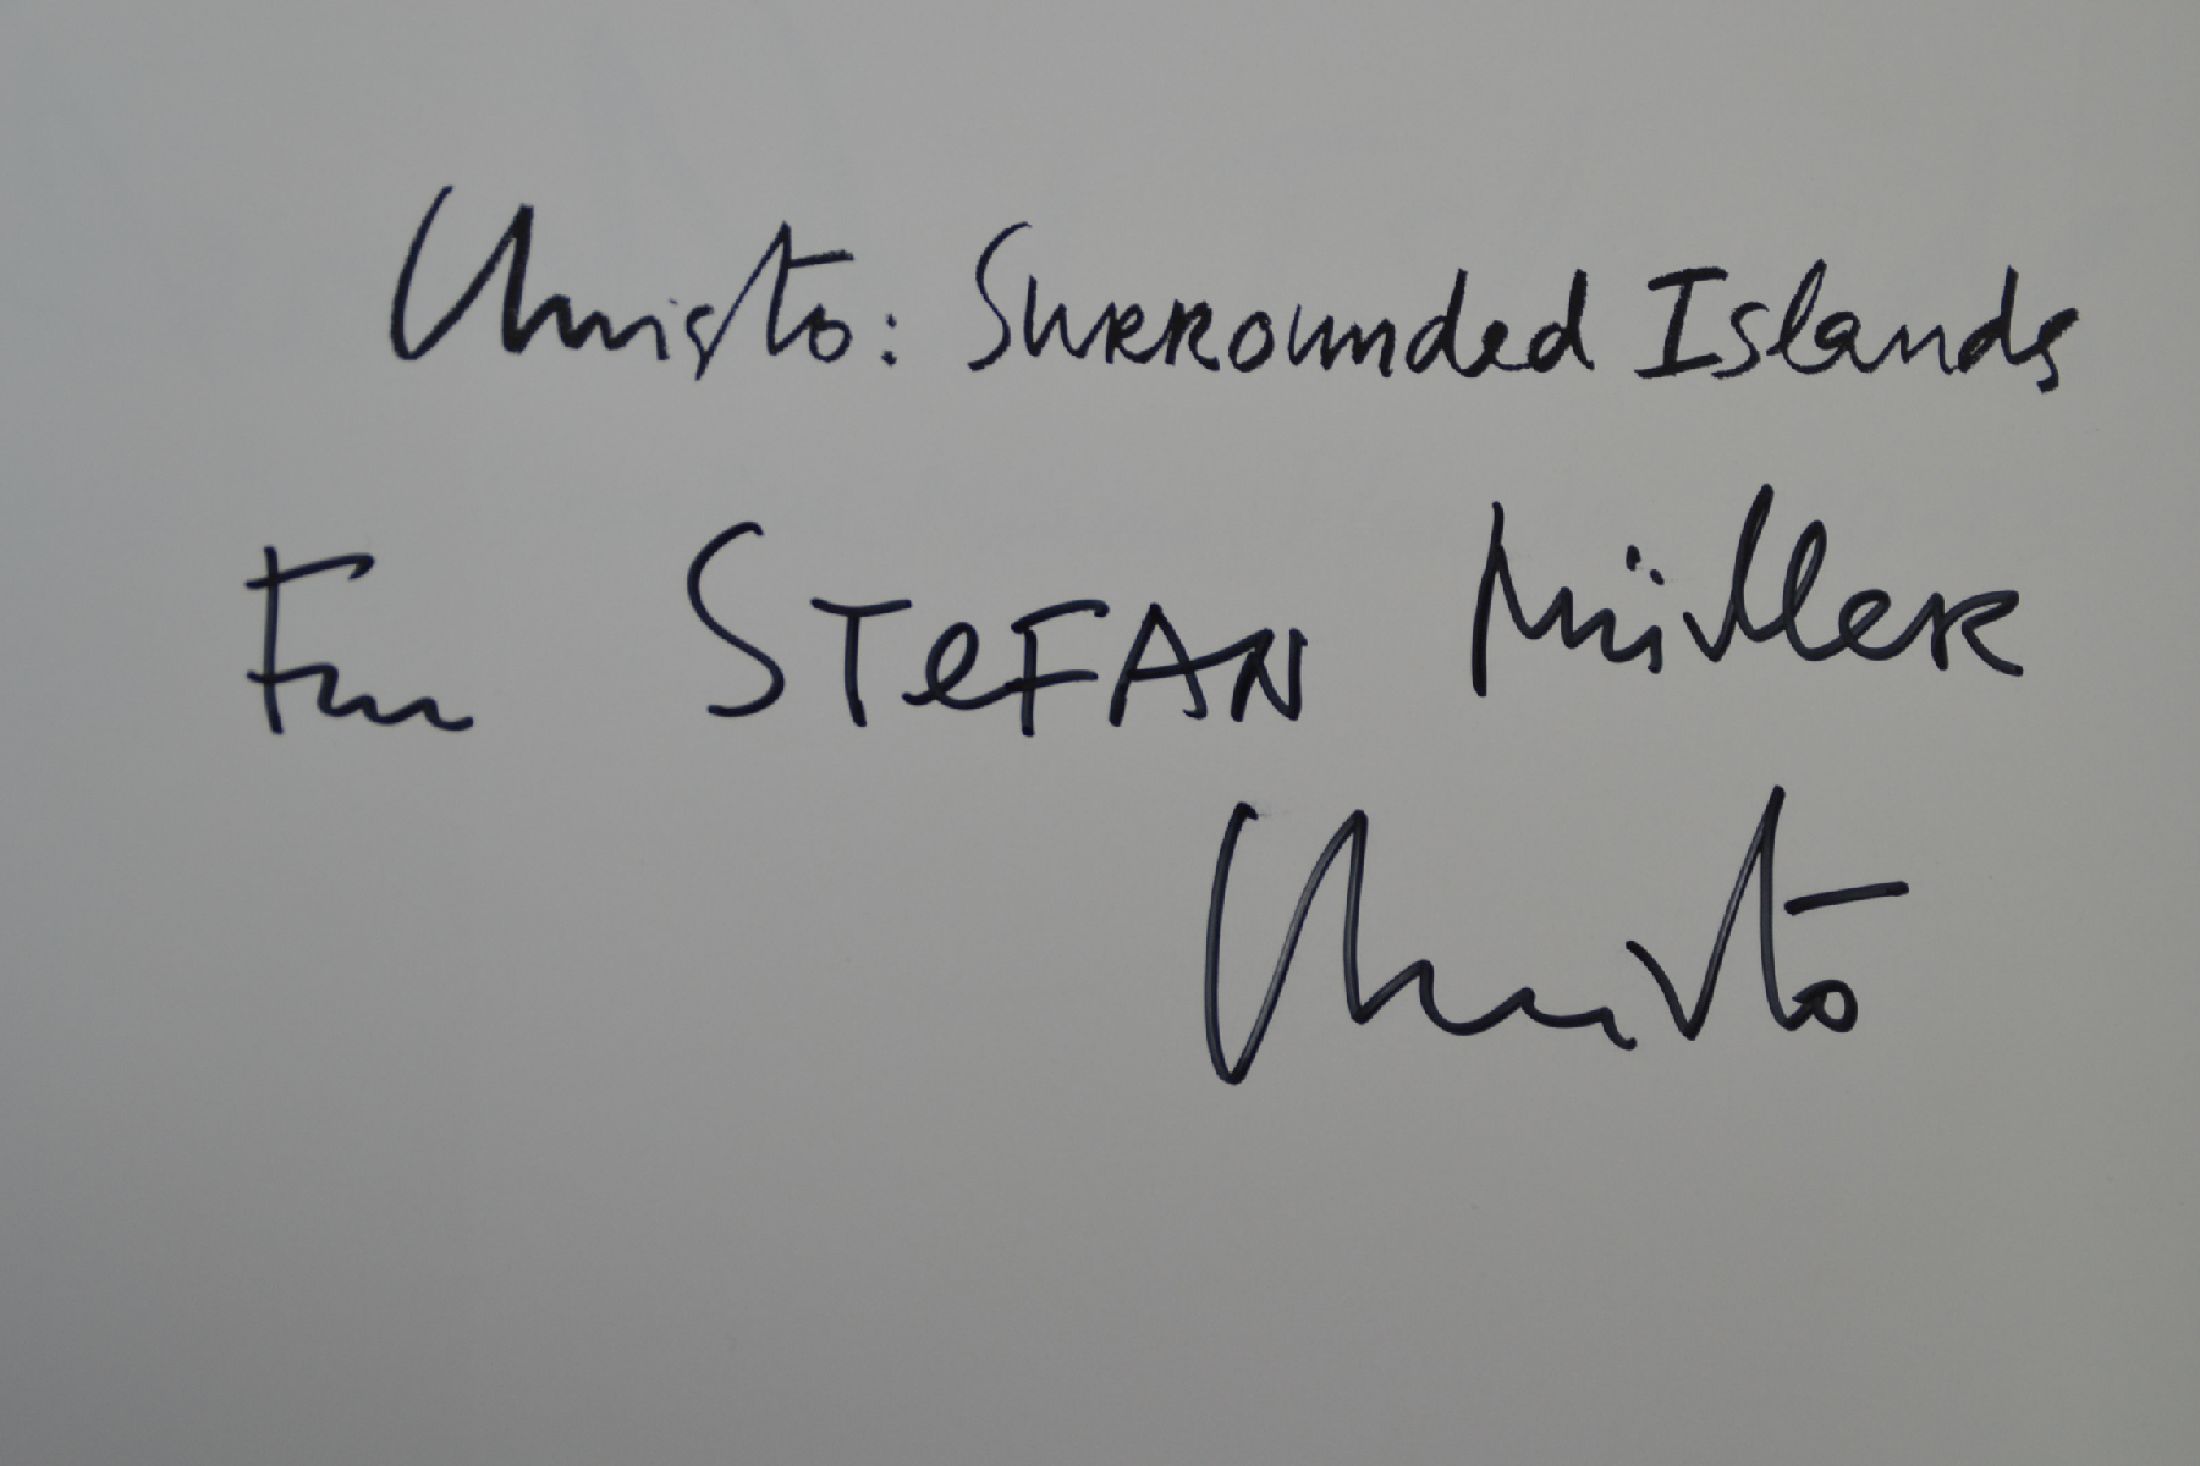 Christo: Surrounded Islands
For STeFAN Müller
Christo